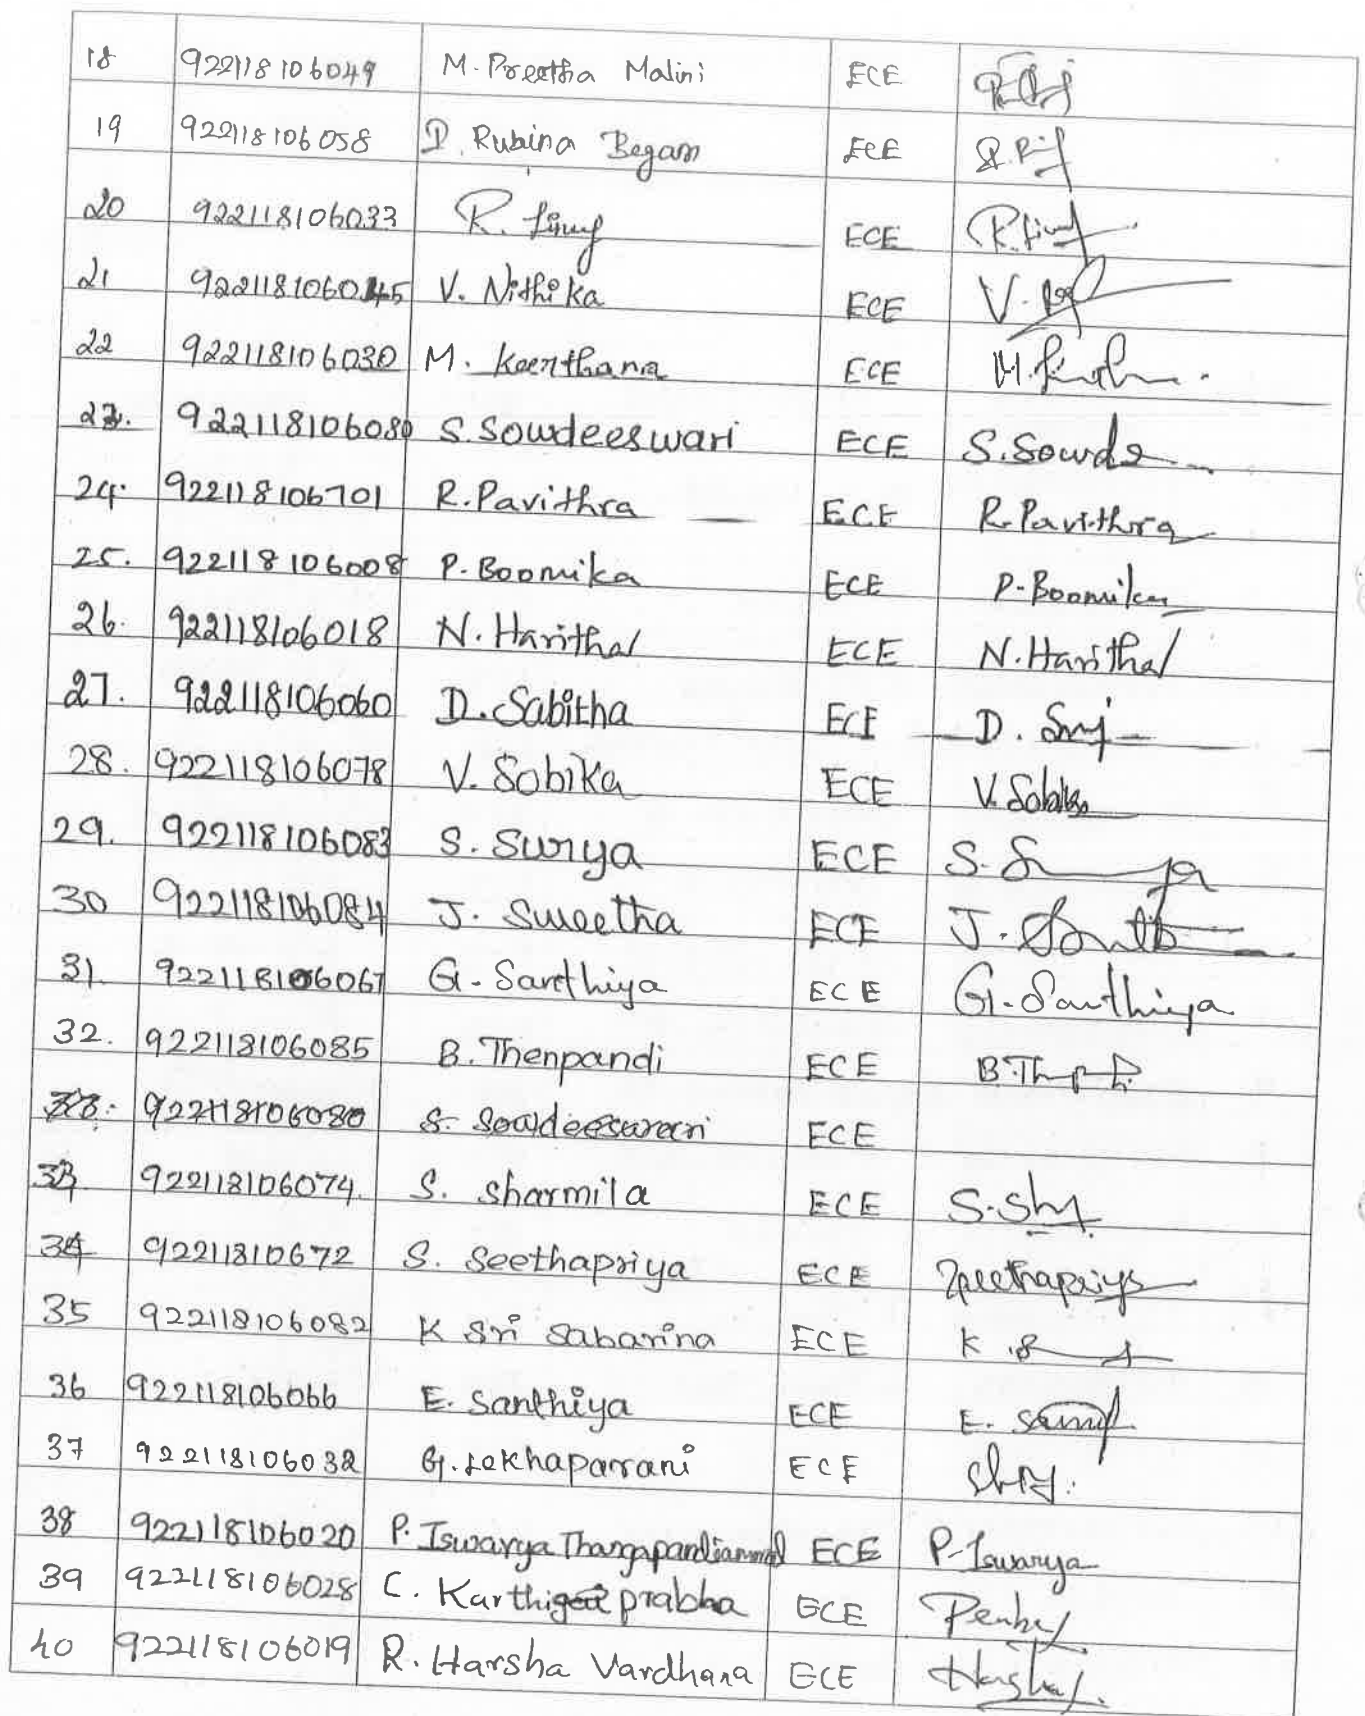 18 922118106049 M. Preetha Malini ECE
19 922118106058 D. Rubina Begam ECE
20 922118106033 R. ECE
21 922118106045 V. Nithika ECE V.
22 922118106030 M. Keerthana ECE M.
23. 922118106080 S. Sowdeeswari ECE S. Sowde
24. 922118106701 R. Pavithra ECE R. Pavithra
25. 922118106008 P. Boomika ECE P. Boomika
26. 922118106018 N. Haritha ECE N. Haritha
27. 922118106060 D. Sabitha ECE D.
28. 922118106078 V. Sobika ECE V. Sobika
29. 922118106083 S. Surya ECE S.
30 922118106084 J. Swetha ECE J.
31. 922118106067 G. Santhiya ECE G. Santhiya
32. 922118106085 B. Thenpandi ECE B.
922118106080 S. Sowdeeswari ECE
33 922118106074. S. Sharmila ECE S.
34 92211810672 S. Seethapriya ECE Seethapriya
35 922118106082 K Sri Sabarina ECE K
36 922118106066 E. Santhiya ECE E.
37 922118106032 G. Lekhaparani ECE
38 922118106020 P. Iswarya Thangapandiammal ECE P. Iswarya
39 922118106028 C. Karthiga prabha ECE
40 922118106019 R. Harsha Vardhana ECE Harsha